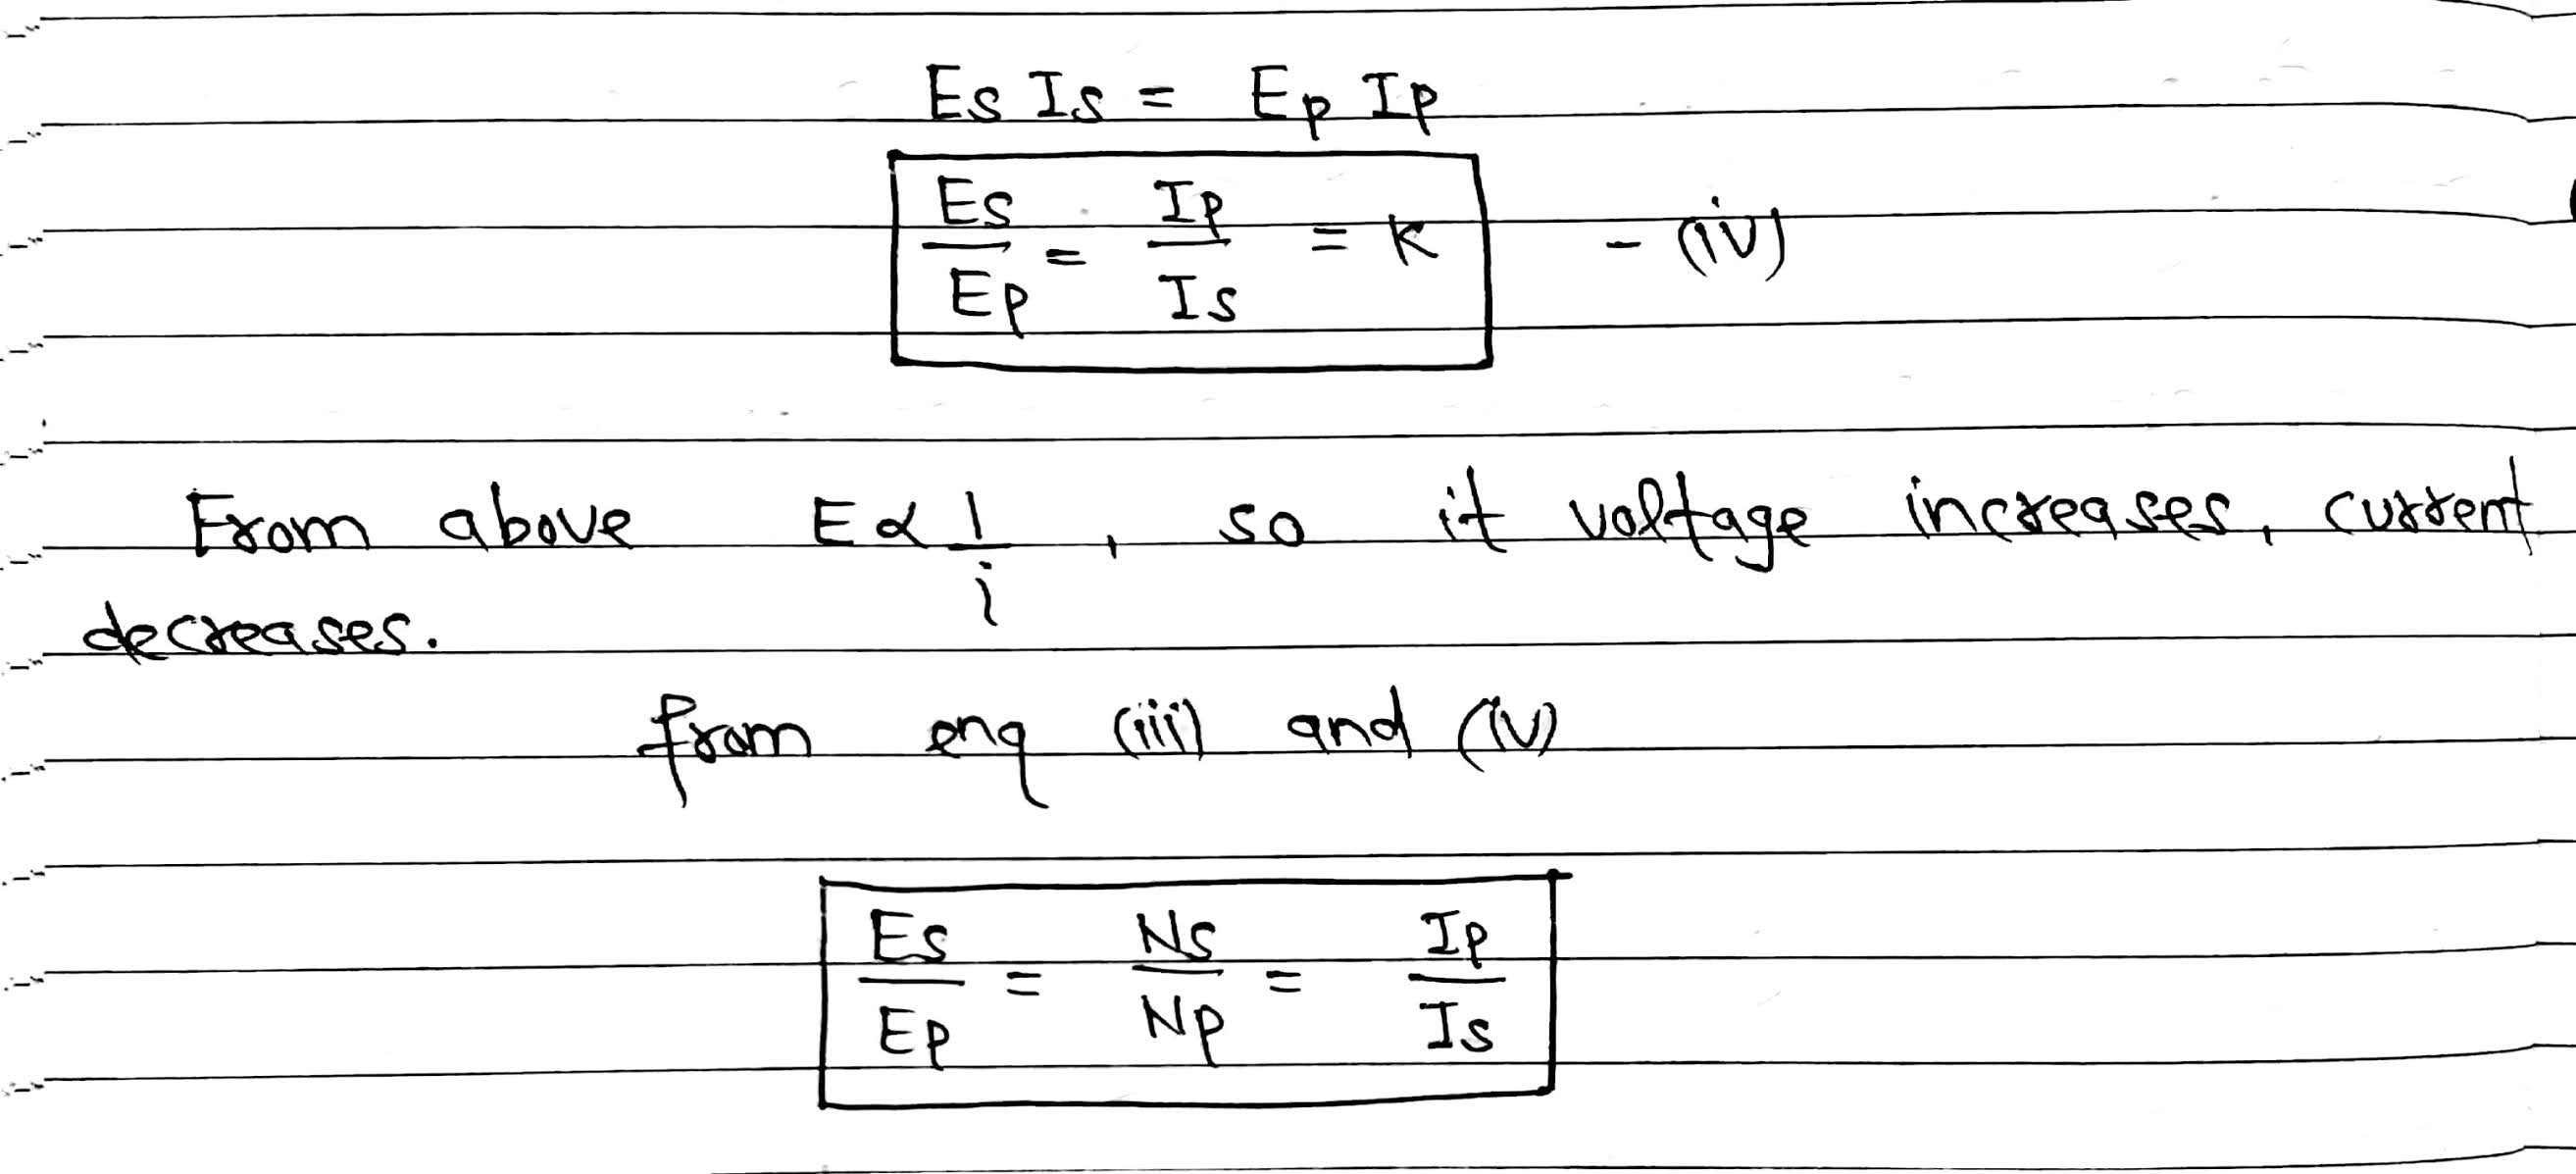 Es Is = Ep Ip
Es/Ep = Ip/Is = K - (iv)
From above E α 1/i , so it voltage increases, current
decreases.
from enq (iii) and (iv)
Es/Ep = Ns/Np = Ip/Is